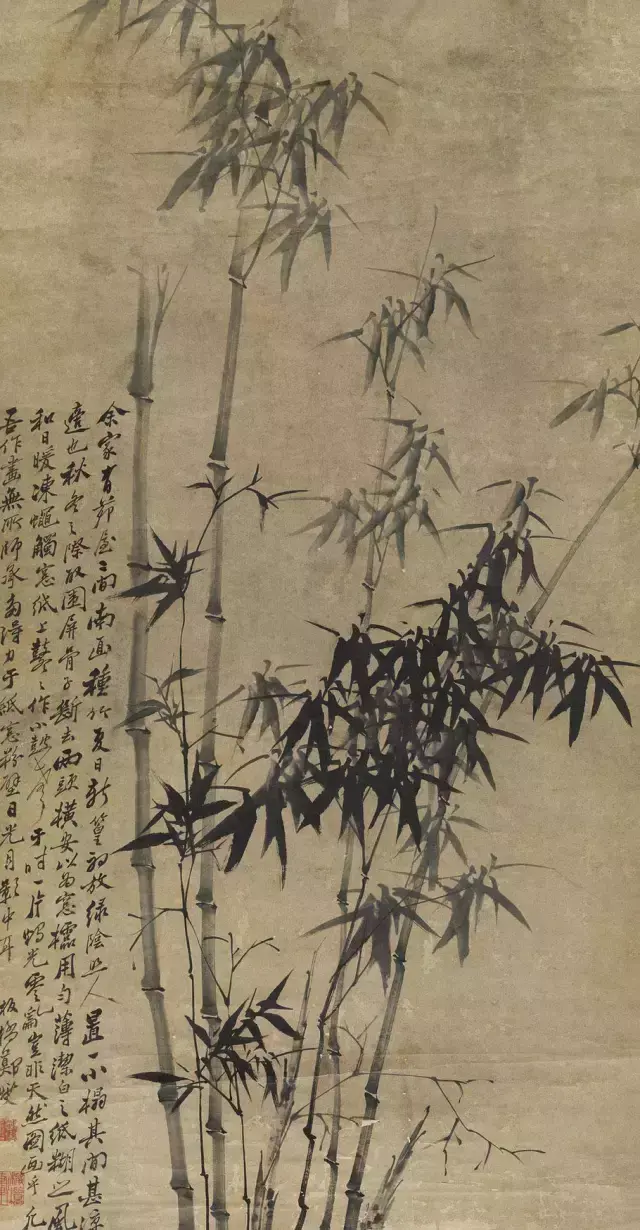 余家有茆屋二間南面種竹夏日新篁初放綠陰照人置一小榻其間甚涼
適也秋冬之際取圍屏骨子斷去兩頭橫安以為窓欞用勻薄潔白之紙糊之風
和日暖凍蠅觸窓紙上鼕〻作小鼓聲于時一片竹影零亂豈非天然圖畫乎凡
吾作畫無所師承多得力于紙窓粉壁日光月影中耳 板橋鄭燮